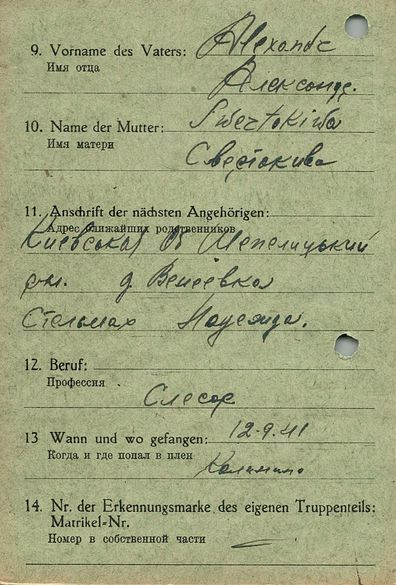 9. Vorname des Vaters: Alexandr
Имя отца
Александр.
10. Name der Mutter: Swertokiwa
Имя матери
Свертокива
11. Anschrift der nächsten Angehörigen:
Адрес ближайших родственников
Киевская
д. Венеевка
Стельмах Надежда.
12. Beruf:
Профессия
Слесар
13 Wann und wo gefangen: 12.9.41
Когда и где попал в плен
14. Nr. der Erkennungsmarke des eigenen Truppenteils:
Matrikel-Nr.
Номер в собственной части —